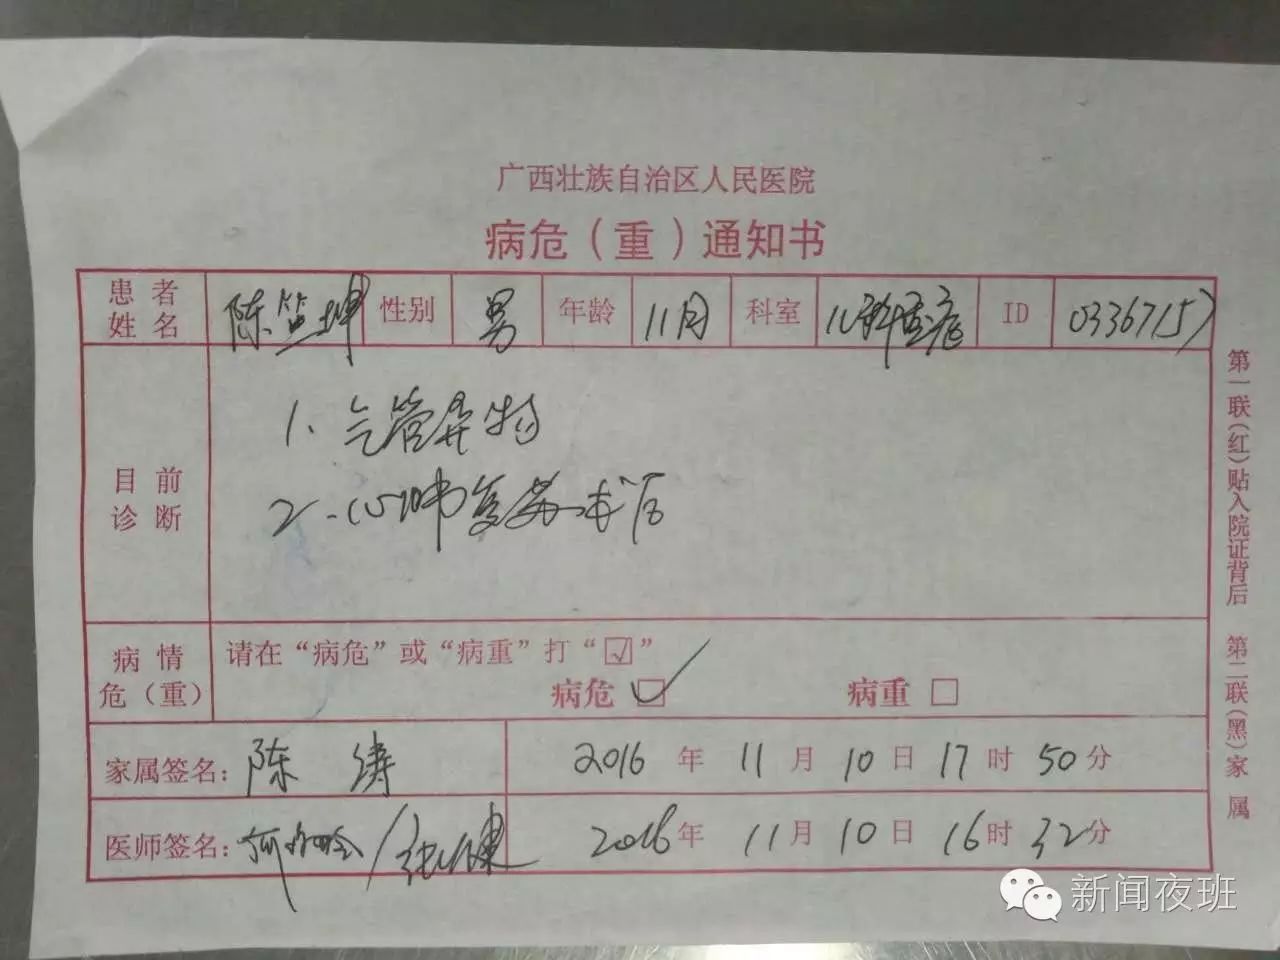 广西壮族自治区人民医院
病危（重）通知书
患者姓名 陈 坤 性别 男 年龄 11月 科室 儿科重症 ID 03367157
目前诊断
1、气管异物
2、心肺复苏术后
病情危（重）
请在“病危”或“病重”打“☑”
病危 ☑ 病重 □
家属签名：陈涛 2016年11月10日17时50分
医师签名： 2016年11月10日16时32分
第一联（红）贴入院证背后 第二联（黑）家属
新闻夜班